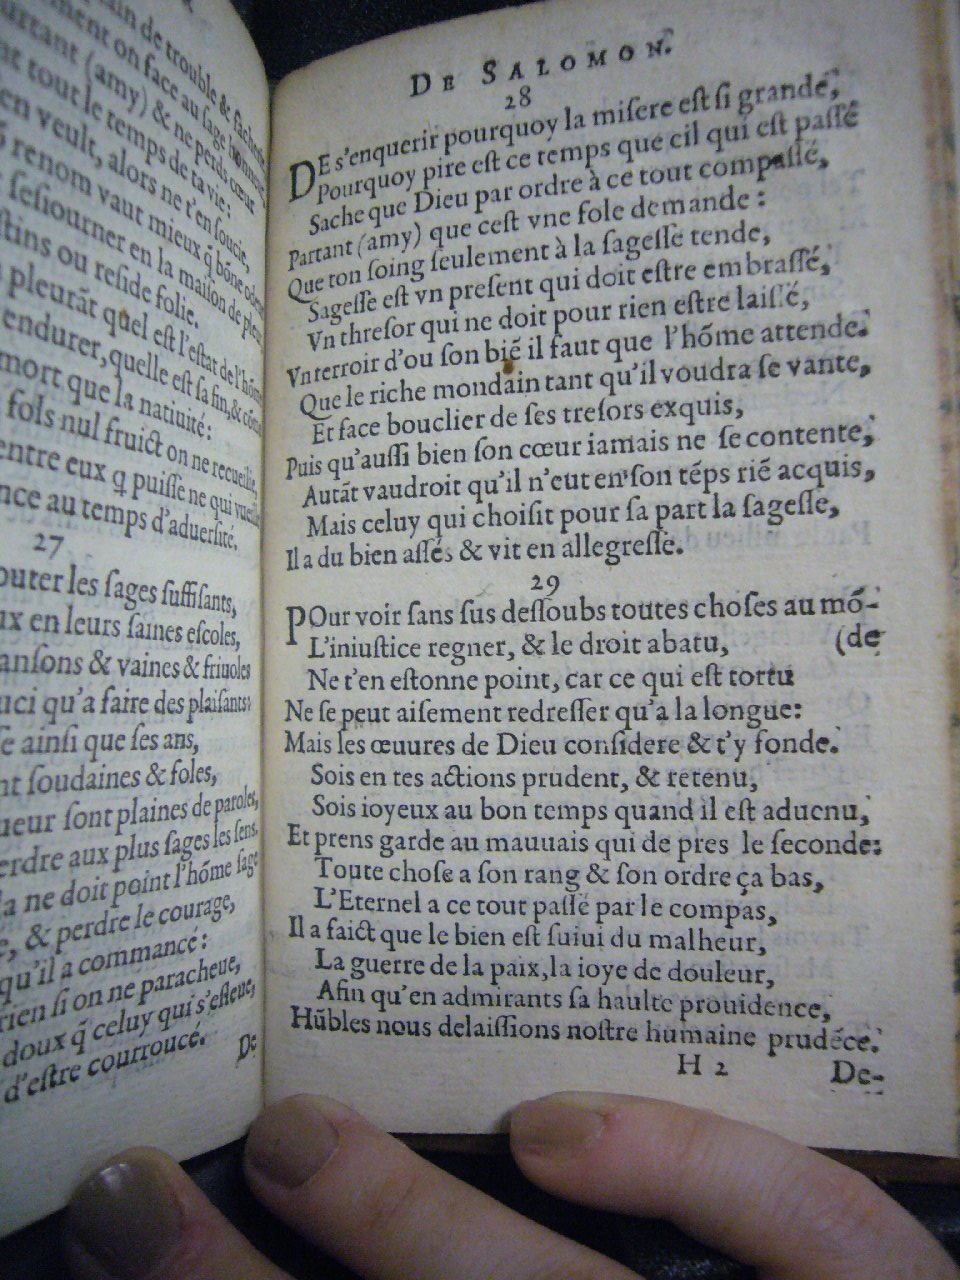 ain de trouble & facherie
ment on face au sage homme,
rtant (amy) & ne perds cœur
nt tout le temps de ta vie:
en veult, alors ne t'en soucie,
renom vaut mieux q̃ bõne
seſiourner en la maiſon de pleur
ſtins ou reſide folie.
pleurãt quel eſt l'eſtat de l'hõme
endurer, quelle eſt ſa fin, & cõme
mort que la natiuité:
fols nul fruict on ne recueille,
entre eux q puiſſe ne qui vueille
nce au temps d'aduerſité.
27
outer les ſages ſuffiſants,
ux en leurs ſaines eſcoles,
anſons & vaines & friuoles
uci qu'a faire des plaiſants:
ainſi que ſes ans,
nt ſoudaines & foles,
ueur ſont plaines de paroles,
erdre aux plus ſages les ſens.
la ne doit point l'hõme ſage
, & perdre le courage,
qu'il a commancé:
rien ſi on ne paracheue,
doux q̃ celuy qui s'eſleue,
d'eſtre courroucé.
De
DE SALOMON.
28
DE s'enquerir pourquoy la miſere eſt ſi grande,
Pourquoy pire eſt ce temps que cil qui eſt paſſé
Sache que Dieu par ordre à ce tout compaſſé,
Partant (amy) que ceſt vne fole demande:
Que ton ſoing ſeulement à la ſageſſe tende,
Sageſſe eſt vn preſent qui doit eſtre embraſſé,
Vn threſor qui ne doit pour rien eſtre laiſſé,
Vn terroir d'ou ſon biẽ il faut que l'hõme attende.
Que le riche mondain tant qu'il voudra ſe vante,
Et face bouclier de ſes treſors exquis,
Puis qu'auſſi bien ſon cœur iamais ne ſe contente,
Autãt vaudroit qu'il n'eut en ſon tẽps riẽ acquis,
Mais celuy qui choiſit pour ſa part la ſageſſe,
Il a du bien aſſés & vit en allegreſſe.
29
POur voir ſans ſus deſſoubs toutes choſes au mõ-
L'iniuſtice regner, & le droit abatu, (de
Ne t'en eſtonne point, car ce qui eſt tortu
Ne ſe peut aiſement redreſſer qu'a la longue:
Mais les œuures de Dieu conſidere & t'y fonde.
Sois en tes actions prudent, & retenu,
Sois ioyeux au bon temps quand il eſt aduenu,
Et prens garde au mauuais qui de pres le ſeconde:
Toute choſe a ſon rang & ſon ordre ça bas,
L'Eternel a ce tout paſſé par le compas,
Il a faict que le bien eſt ſuiui du malheur,
La guerre de la paix, la ioye de douleur,
Afin qu'en admirants ſa haulte prouidence,
Hũbles nous delaiſſions noſtre humaine prudẽce.
H 2
De-